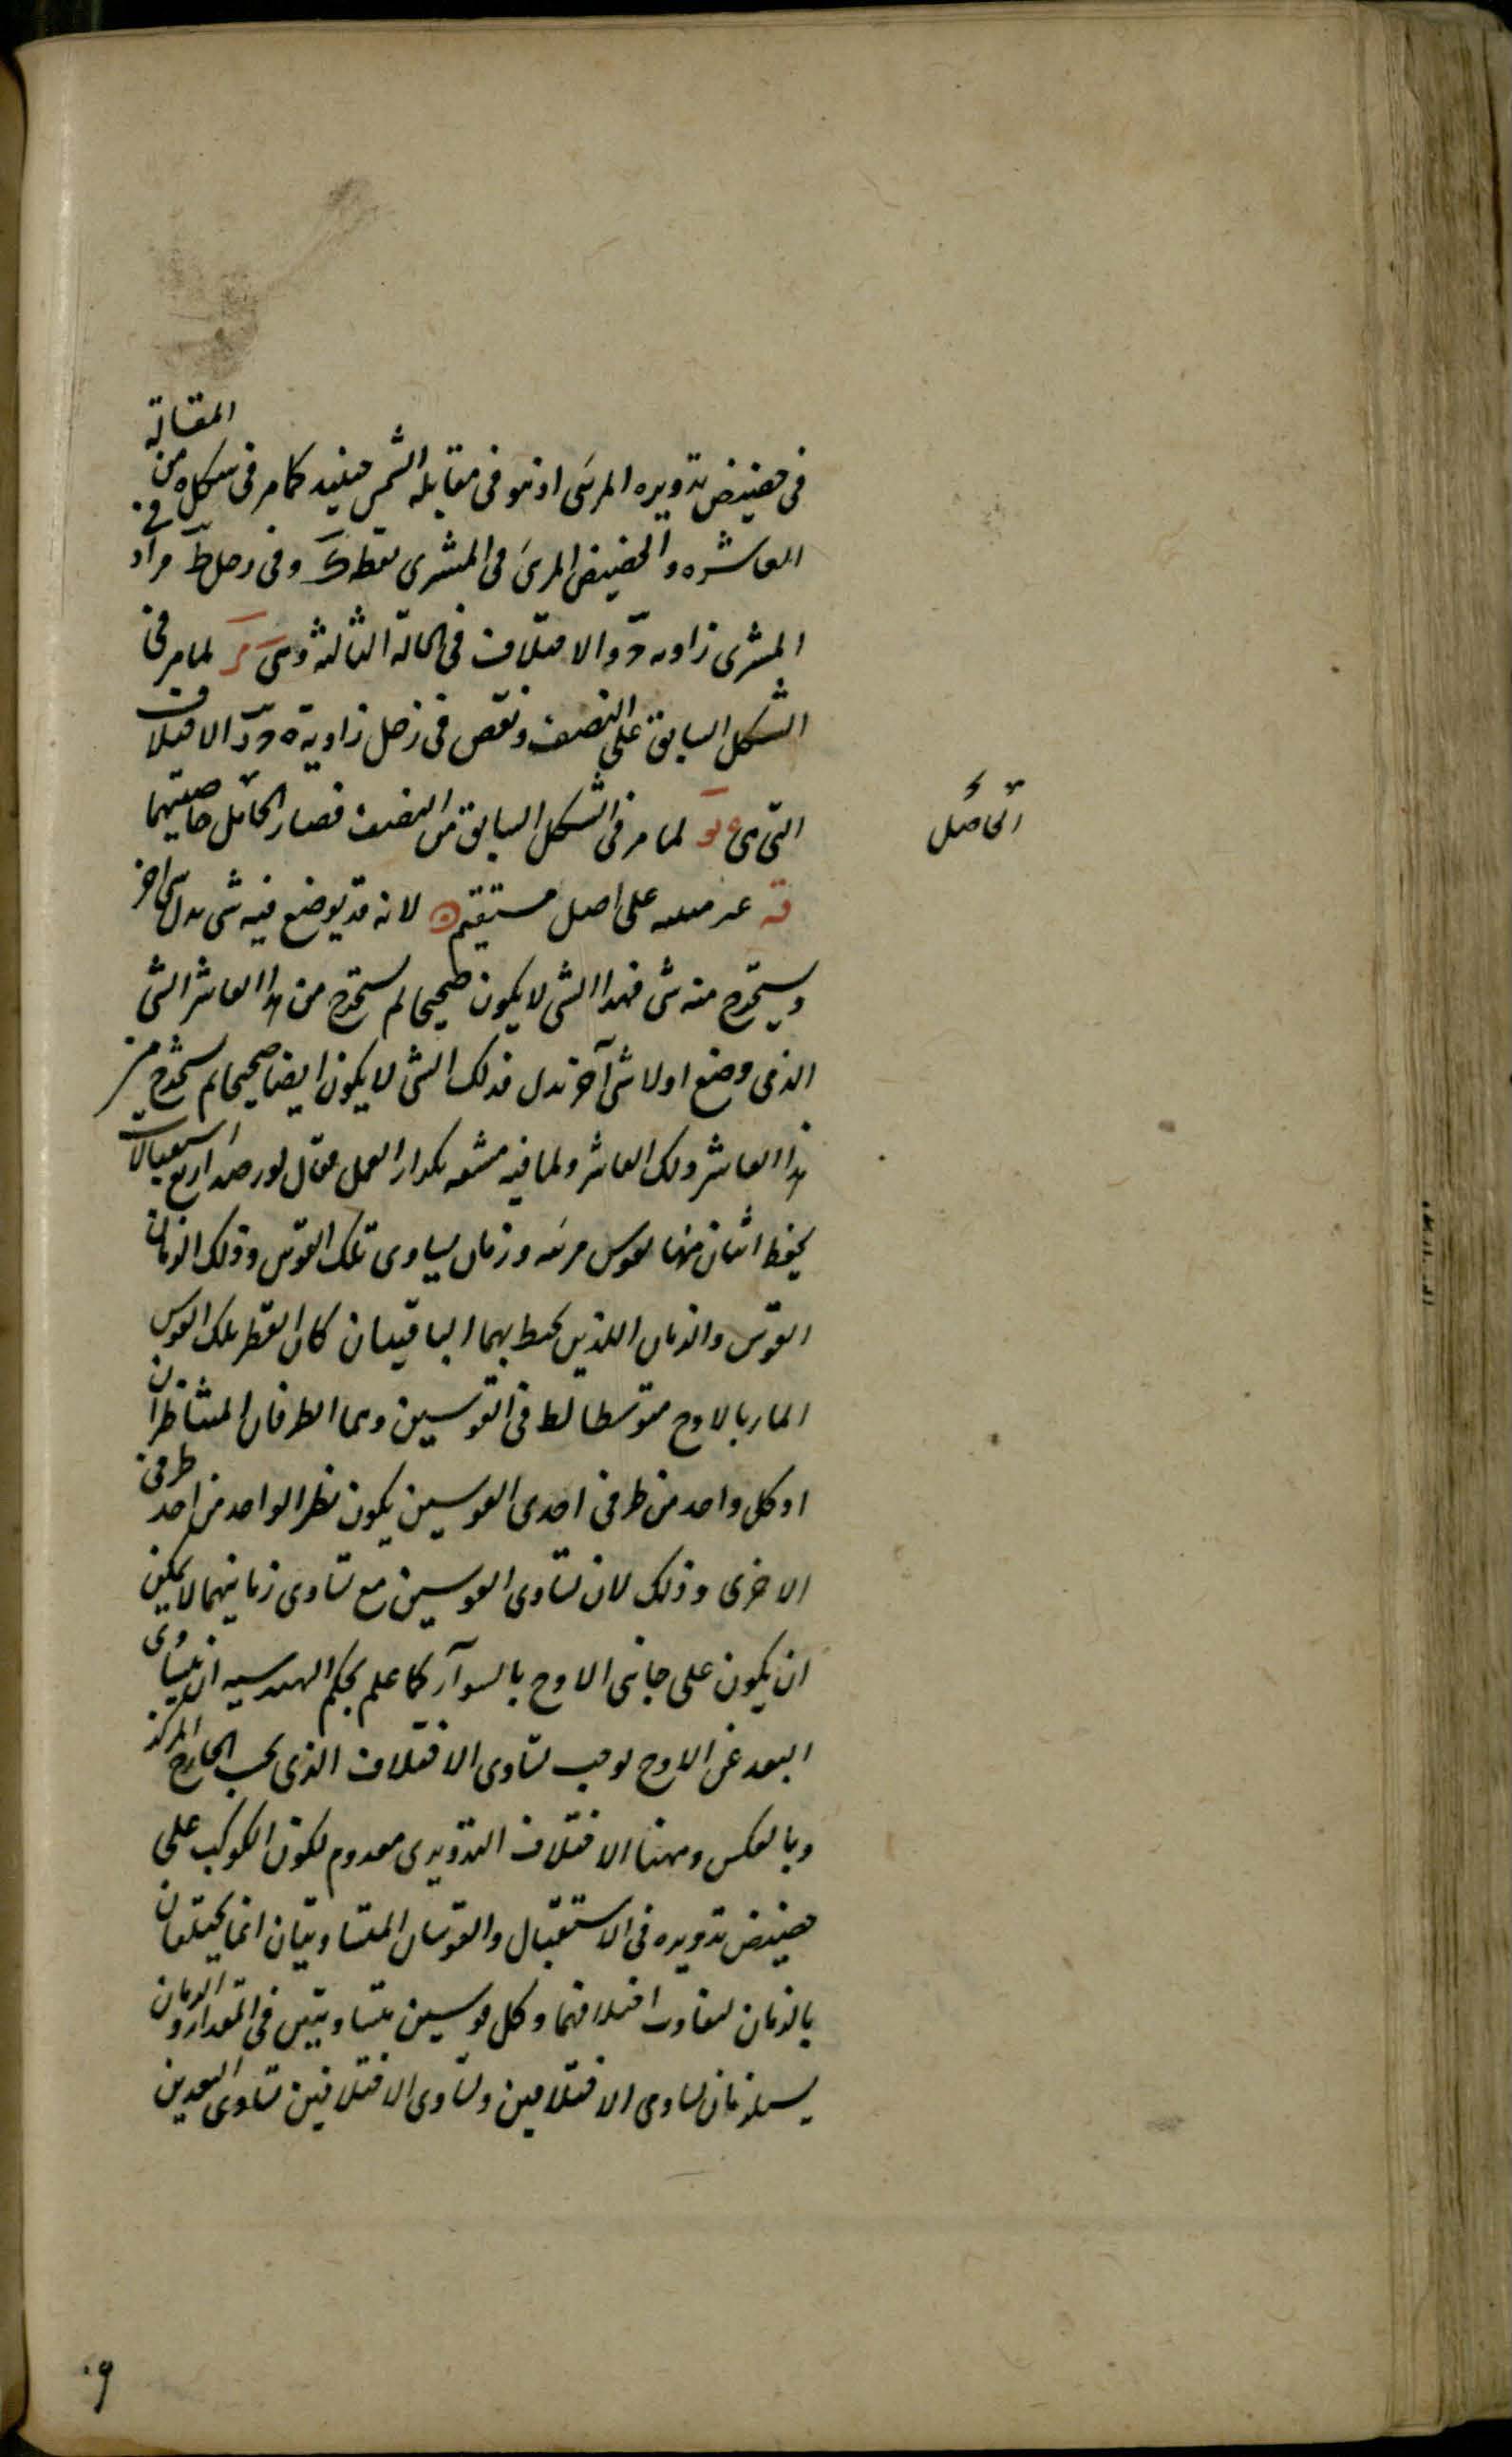 في حضيض تدويره المرئى اذ هو فى مقابله الشمس حينئذ كما مر فى شكله من المقالة
العاشره والحضيض المرئى فى المشترى نقطة ك وفى زحل ط فزاد فى
المشترى زاويه والاختلاف فى الحالة الثالثة وهى لما مر فى
الشكل السابق على النصف ونقص فى زحل زاوية الاختلاف
التى هى لما مر فى الشكل السابق من النصف فصار الحاصل
على اصل مستقيم لانه قد يوضع فيه شى بدل شى اخر
ويستخرج منه شى فهذا الشى لا يكون صحيحا لم يستخرج من هذا العاشر الشى
الذى وضع اولا شى آخر بدل فذلك الشى لا يكون ايضا صحيحا لم يستخرج من
هذا العاشر ذلك العاشر ولما فيه تكرار العمل فقال لو رصد اربع استقبالات
يحيط اثنان منها بقوس مرئيه وزمان يساوى تلك القوس وذلك الزمان
القوس والزمان اللذين يحيط بهما الباقيتان كان القطر تلك القوس
المار بالاوج متوسطا لطرفى القوسين وهما الطرفان المتناظران
او كل واحد من طرفى احدى القوسين يكون نظير الواحد من احد طرفى
الاخرى وذلك لان تساوى القوسين مع تساوى زمانيهما لا يمكن
ان يكون على جانبى الاوج بالسوآر كما علم بحكم الهندسيه ان تساوى
البعد عن الاوج يوجب تساوى الاختلاف الذى بحسب الخارج المركز
وبالعكس وههنا الاختلاف التدويرى معدوم لكون الكوكب على
حضيض تدويره فى الاستقبال والقوسان المتساويتان انما يختلفان
بالزمان لتفاوت اختلافهما وكل قوسين متساويتين فى المقدار والزمان
يستلزمان تساوى الاختلافين وتساوى الاختلافين تساوى البعدين
الحاصل